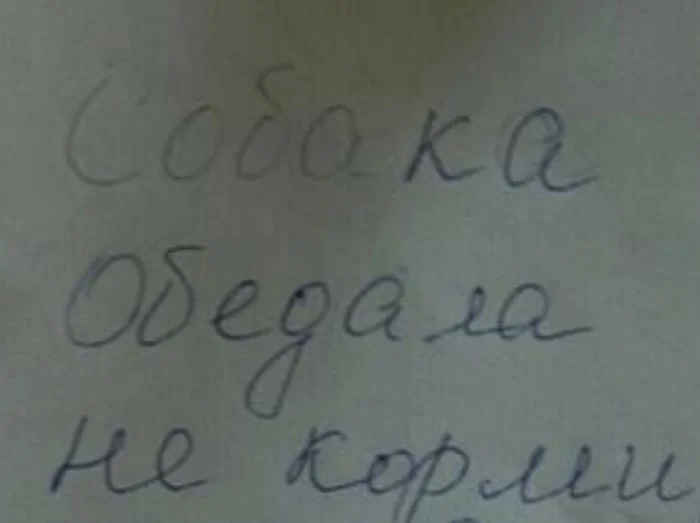 Собака
Обедала
не корми